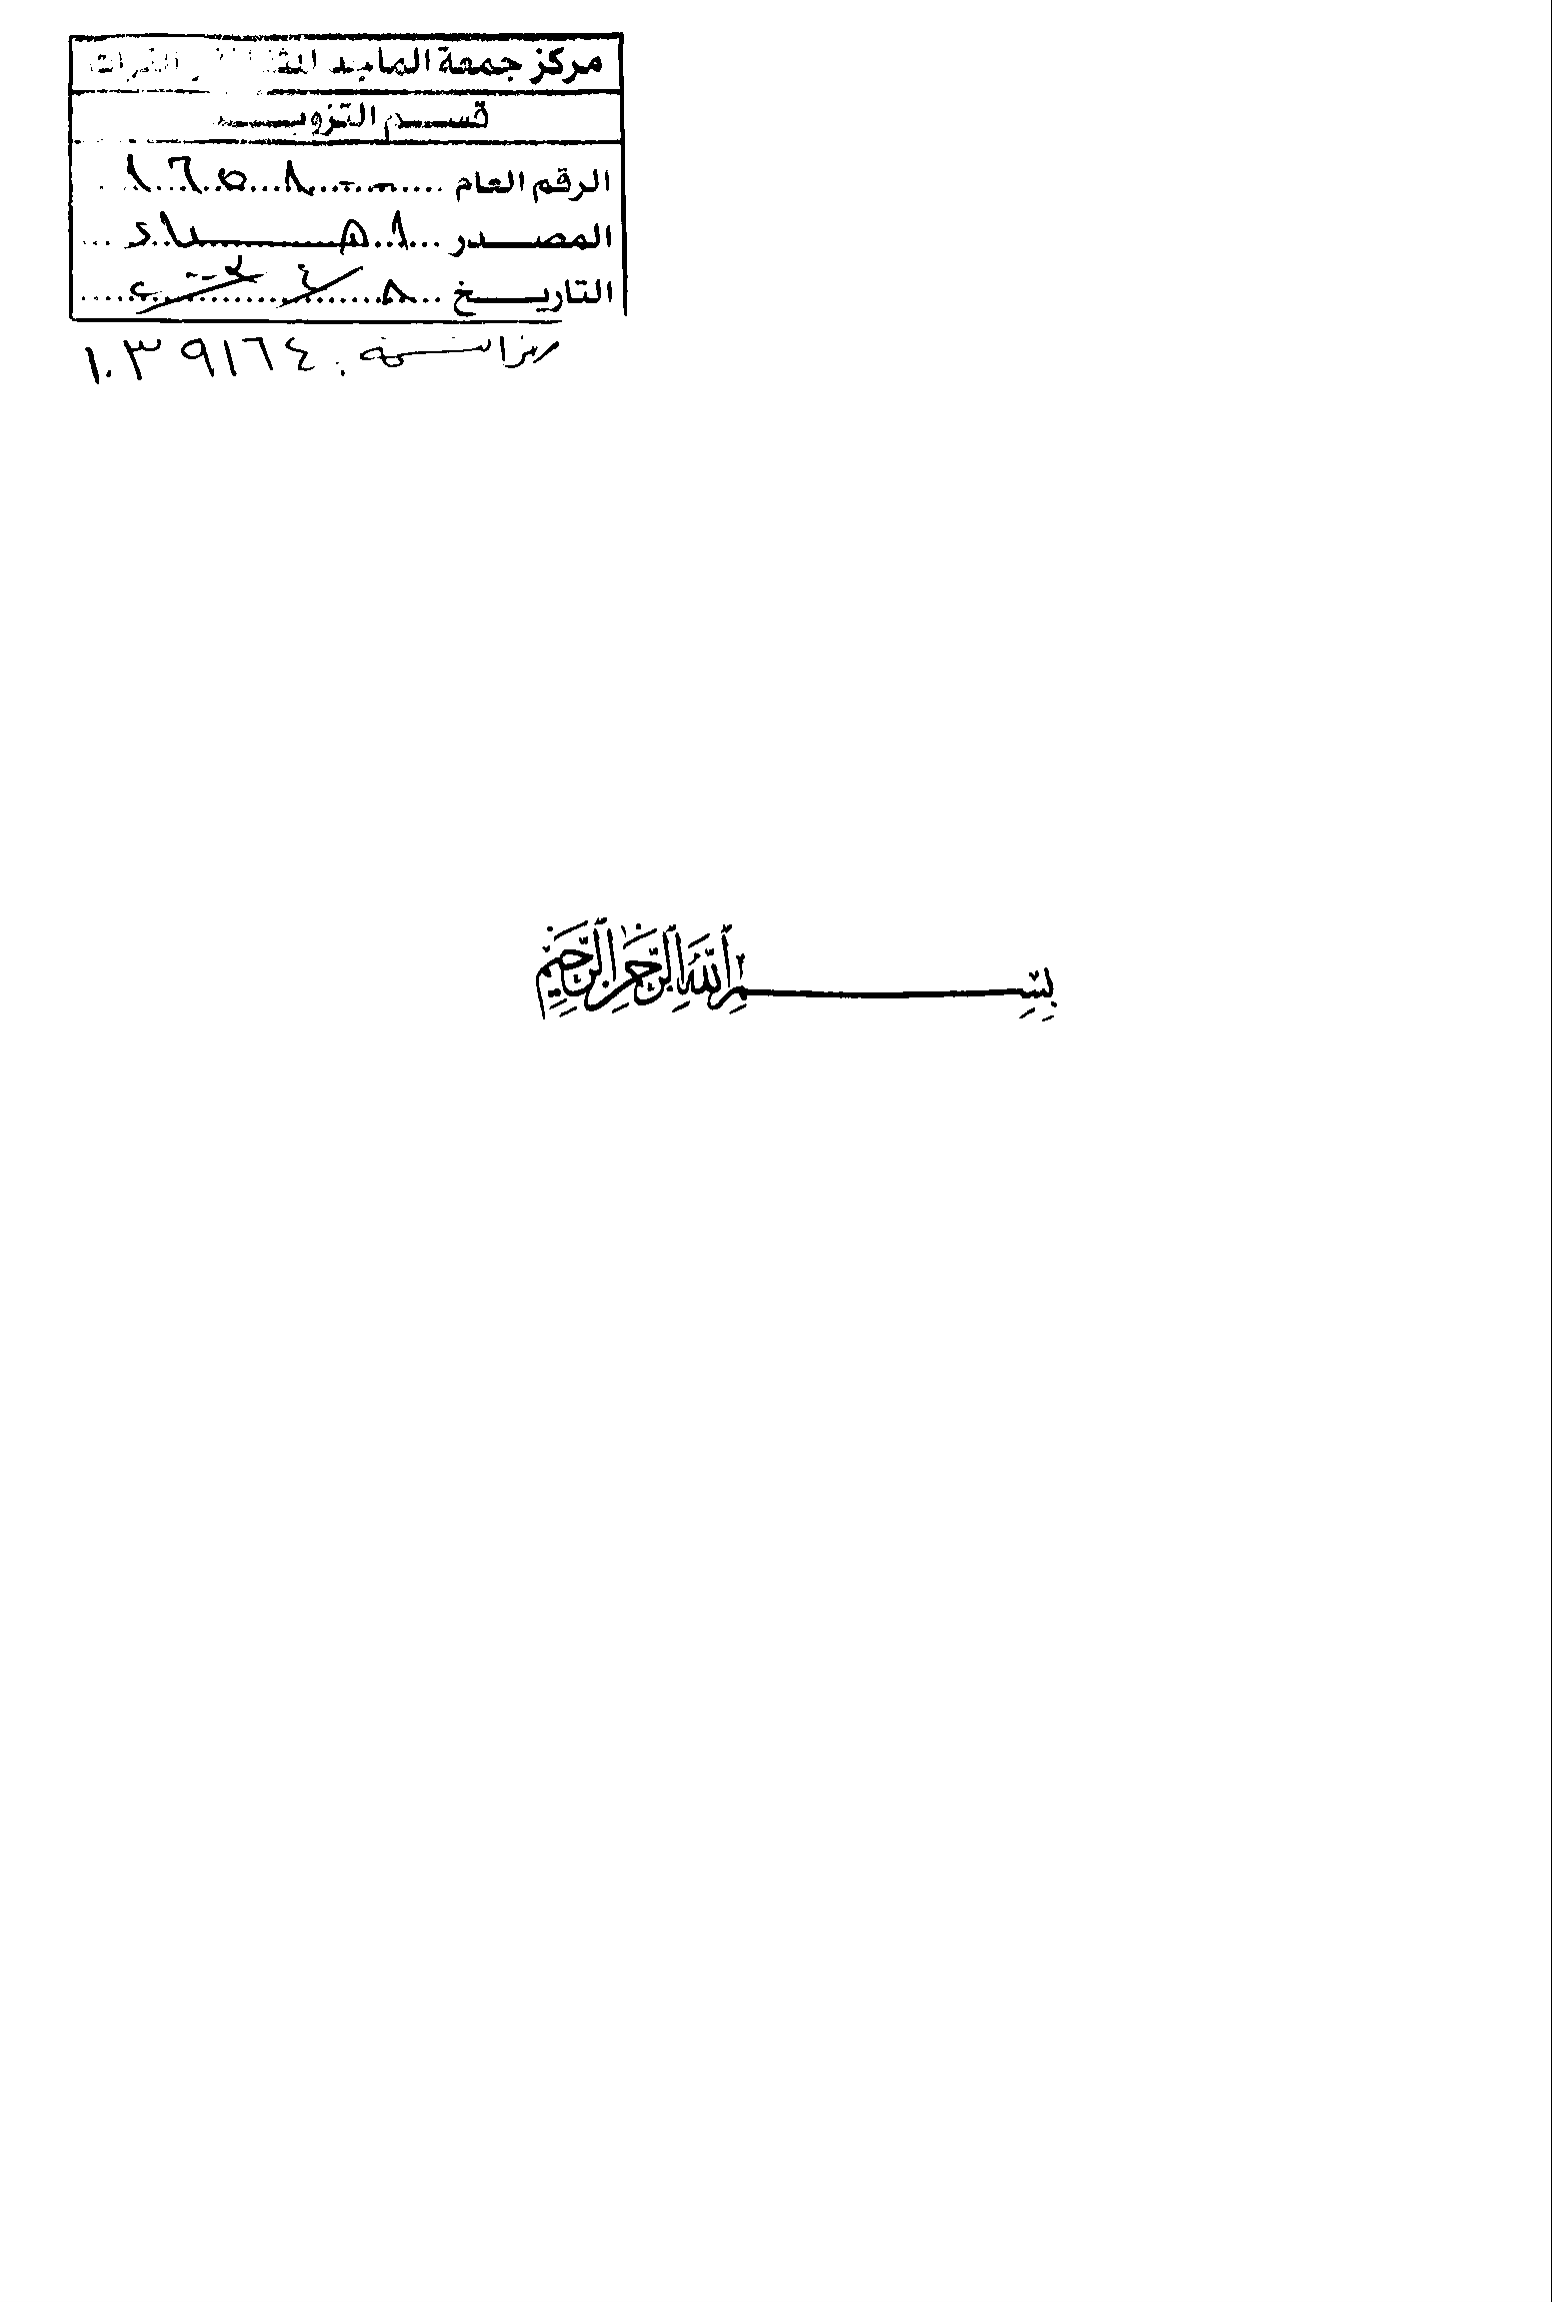 مركز جمعة الماجد للثقافة والتراث
قسم التزويد
الرقم العام ١٦٥٨٠٠
المصدر اهداء
التاريخ ٨ / ٤ /
رمز النسخة : ١٠٣٩١٦٤
بِسْمِ ٱللَّهِ ٱلرَّحْمَٰنِ ٱلرَّحِيمِ